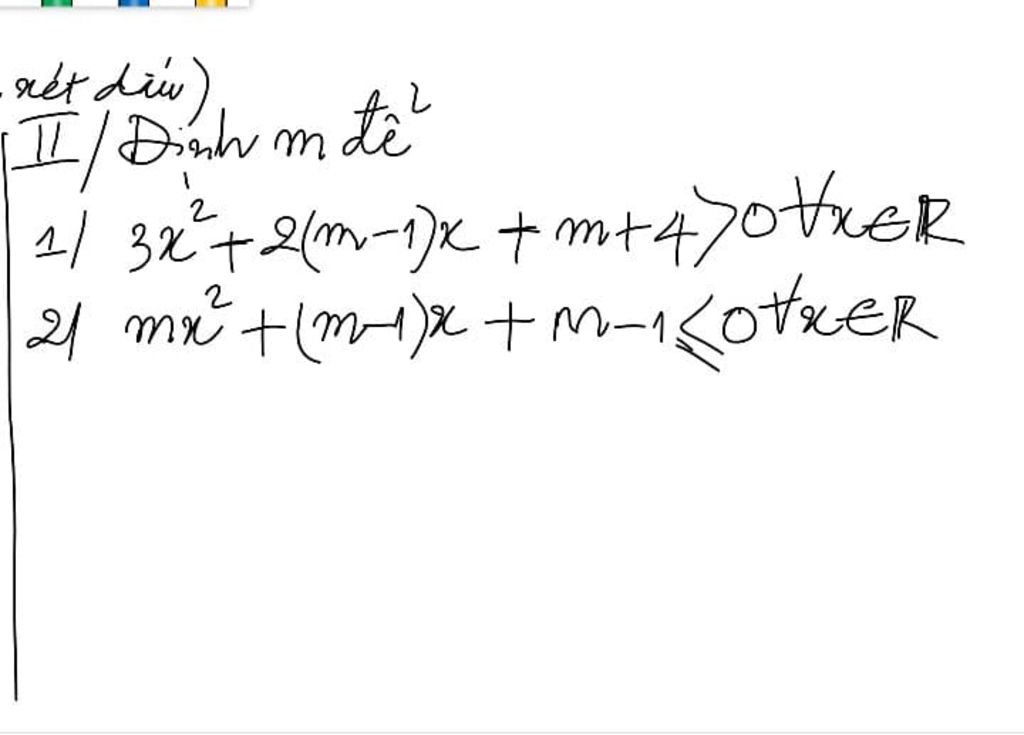 xét dấu)
II/ Định m để
1/ 3x² + 2(m-1)x + m+4 > 0 ∀x∈R
2/ mx² + (m-1)x + m-1 ≤ 0 ∀x∈R